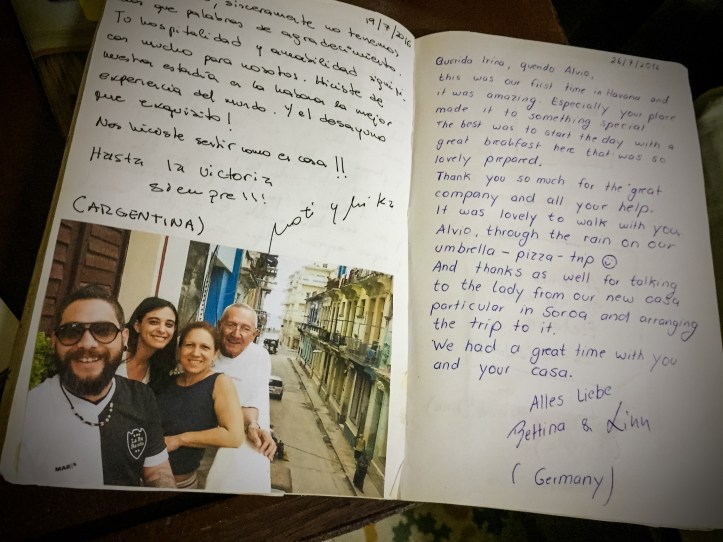 19/7/2016
, sinceramente no tenemos
más que palabras de agradecimiento.
Tu hospitalidad y amabilidad signifi-
can mucho para nosotros. Hiciste de
nuestra estadía en la habana la mejor
experiencia del mundo. Y el desayuno
que exquisito!
Nos hiciste sentir como es casa!!
Hasta la victoria
siempre!!!
(ARGENTINA)
y Mika
26/7/2016
Querida Irina, querido Alvio,
this was our first time in Havana and
it was amazing. Especially your place
made it to something special
The best was to start the day with a
great breakfast here that was so
lovely prepared.
Thank you so much for the great
company and all your help.
It was lovely to walk with you,
Alvio, through the rain on our
umbrella - pizza - trip ☺
And thanks as well for talking
to the lady from our new casa
particular in Soroa and arranging
the trip to it.
We had a great time with you
and your casa.
Alles Liebe
Bettina & Linn
(Germany)